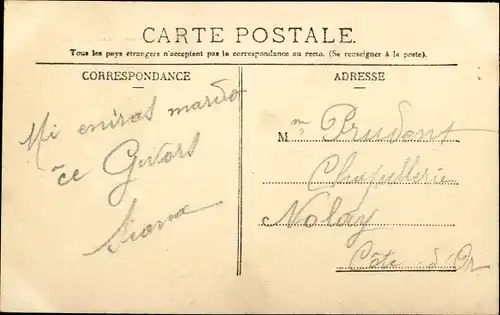 CARTE POSTALE.
Tous les pays étrangers n'acceptent pas la correspondance au recto. (Se renseigner à la poste).
CORRESPONDANCE
Mi eniras mardo
ĉe Givors
Siana
ADRESSE
Mᵐ Prudent
Chapellerie
Nolay
Côte-d'Or